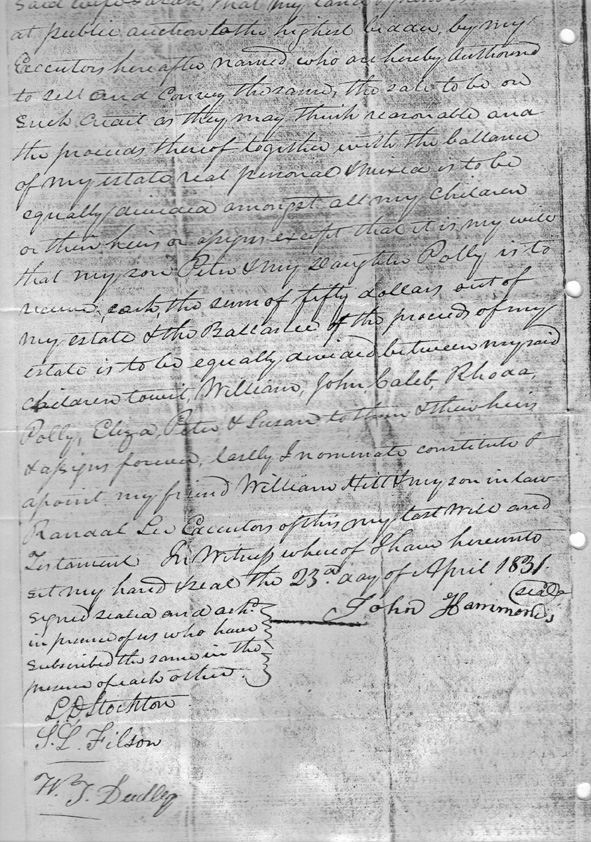 said wife Sarah, that my land
at public auction to the highest bidder, by my
Executors hereafter named who are hereby Authorized
to sell and Convey the same, the sale to be on
such credit as they may think reasonable and
the proceeds thereof together with the ballance
of my estate real personal & mixed is to be
equally divided amongst all my Children
or their heirs or assigns except that it is my will
that my son Peter & my daughter Polly is to
receive each the sum of fifty dollars out of
my estate & the Ballance of the proceeds of my
estate is to be equally divided between my said
children towit, William, John, Caleb, Rhoda,
Polly, Eliza, Peter & Susan to them & their heirs
& assigns forever, lastly I nominate constitute &
apoint my friend William Hitt & my son in law
Randal Lee Executors of this my last Will and
Testament In Witness whereof I have hereunto
set my hand & seal the 23rd day of April 1831.
signed sealed and ackd
John Hammonds seal
in presence of us who have
subscribed the same in the
presence of each other.
L D Stockton
S. L. Filson
W. T. Dudley